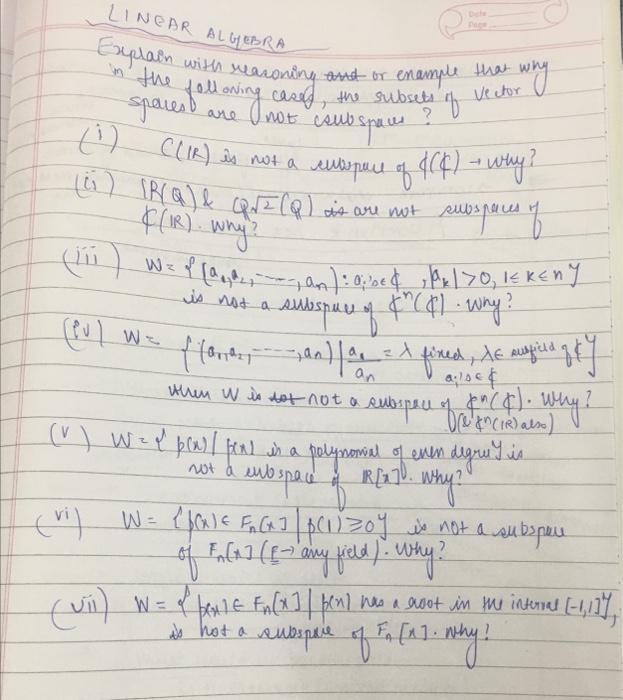 LINEAR ALGEBRA
Date
Page
Explain with reasoning and or example that why
in the following cases, the subsets of vector
spaces are not subspaces ?
(i) C(IR) is not a subspace of ₵(₵) → why?
(ii) IR(Q) & Q√2(Q) is are not subspaces of
₵(IR). Why?
(iii) W = {(a₁,a₂,-----,aₙ) : aᵢ's ∈ ₵, |aₖ| > 0, 1 ≤ k ≤ n}
is not a subspace of ₵ⁿ(₵). Why?
(iv) W = {(a₁,a₂,-----,aₙ) | a₁/aₙ = λ fixed, λ ∈ subfield of ₵}
aᵢ's ∈ ₵
then W is not a subspace of ₵ⁿ(₵). Why?
(& ₵ⁿ(IR) also)
(v) W = { p(x) | p(x) is a polynomial of even degree} is
not a subspace of IR[x]. Why?
(vi) W = {p(x) ∈ Fₙ[x] | p(1) ≥ 0} is not a subspace
of Fₙ[x] (F → any field). Why?
(vii) W = { p(x) ∈ Fₙ[x] | p(x) has a root in the interval [-1,1]},
is not a subspace of Fₙ[x]. Why?